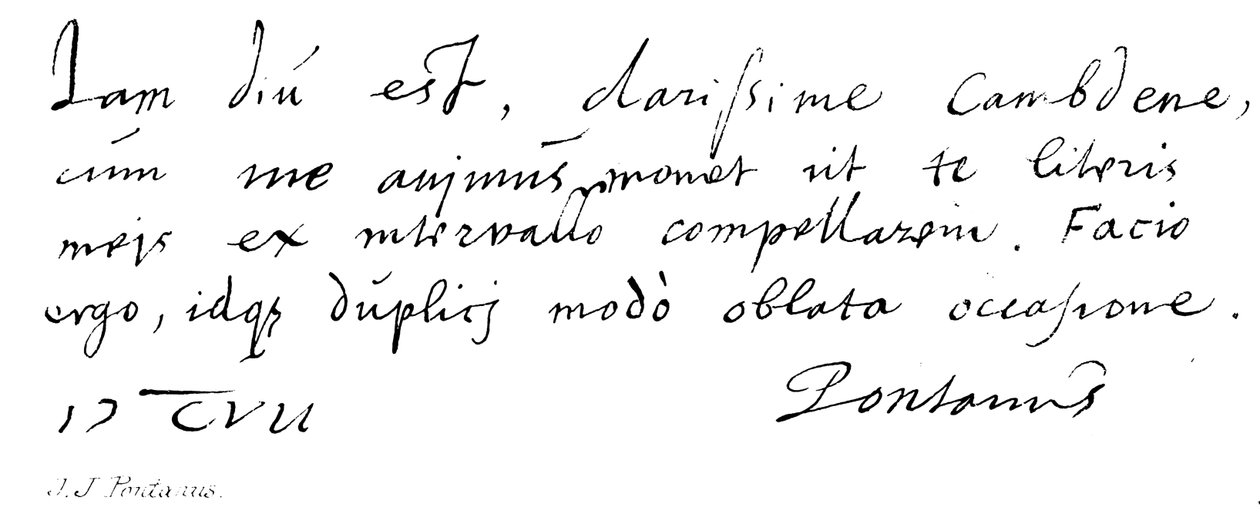 Iam diú est, clarissime Cambdene,
cúm me anjmús monet ut te literis
mejs ex intervallo compellarem. Facio
ergo, idq; dúplicj modò oblata occasione.
Pontanús
J. J Pontanus.